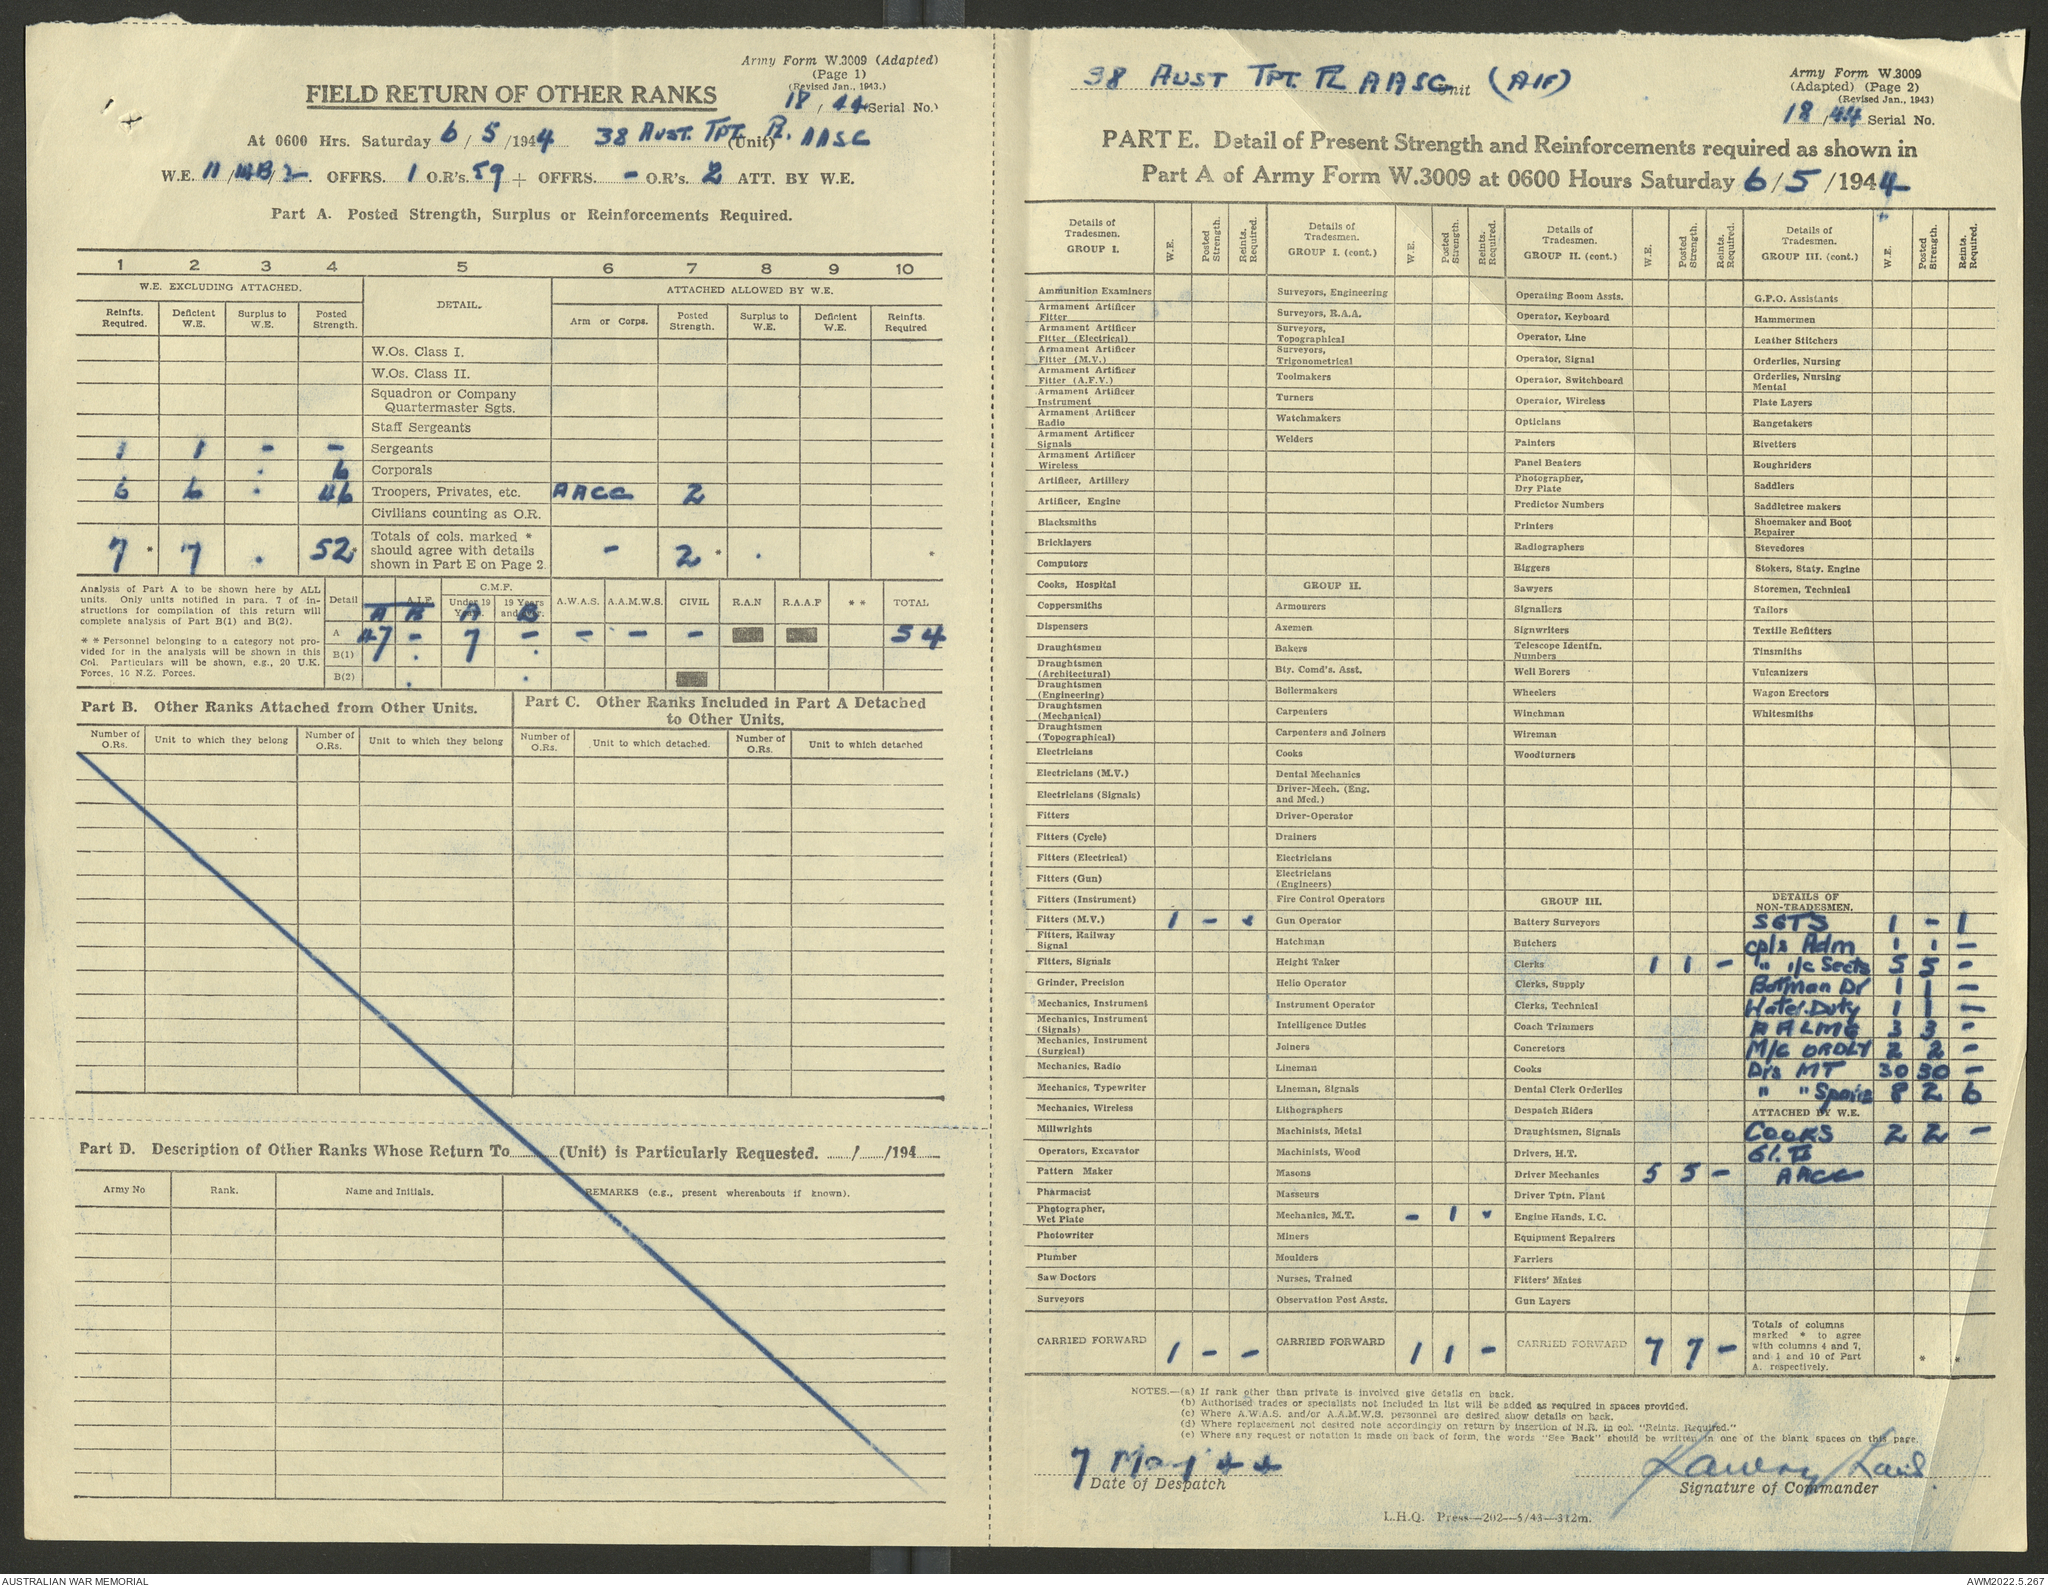 Army Form W.3009 (Adapted)
(Page 1)
(Revised Jan., 1943.)
FIELD RETURN OF OTHER RANKS
18 / 44 (Serial No.)
At 0600 Hrs. Saturday 6 / 5 / 1944 38 Aust. Tpt. Pl. AASC (Unit)
W.E. 11 / / 2 OFFRS. 1 O.R's. 59 + OFFRS. - O.R's. 2 ATT. BY W.E.
Part A. Posted Strength, Surplus or Reinforcements Required.
1 2 3 4 5 6 7 8 9 10
W.E. EXCLUDING ATTACHED. DETAIL. ATTACHED ALLOWED BY W.E.
Reinfts. Required. Deficient W.E. Surplus to W.E. Posted Strength. Arm or Corps. Posted Strength. Surplus to W.E. Deficient W.E. Reinfts. Required
W.Os. Class I.
W.Os. Class II.
Squadron or Company
Quartermaster Sgts.
Staff Sergeants
1 1 - - Sergeants
6 Corporals
6 6 46 Troopers, Privates, etc. AACC 2
Civilians counting as O.R.
7 * 7 . 52 * Totals of cols. marked * should agree with details shown in Part E on Page 2. - 2 * . *
Analysis of Part A to be shown here by ALL
units. Only units notified in para. 7 of in-
structions for compilation of this return will
complete analysis of Part B(1) and B(2).
* * Personnel belonging to a category not pro-
vided for in the analysis will be shown in this
Col. Particulars will be shown, e.g., 20 U.K.
Forces, 16 N.Z. Forces.
Detail A.I.F. C.M.F. Under 19 Years. 19 Years and over. A.W.A.S. A.A.M.W.S. CIVIL R.A.N R.A.A.F * * TOTAL
A B A B
A 47 - 7 - - - - 54
B(1)
B(2)
Part B. Other Ranks Attached from Other Units.
Number of O.Rs. Unit to which they belong Number of O.Rs. Unit to which they belong
Part C. Other Ranks Included in Part A Detached
to Other Units.
Number of O.Rs. Unit to which detached. Number of O.Rs. Unit to which detached
Part D. Description of Other Ranks Whose Return To (Unit) is Particularly Requested. / /194
Army No Rank. Name and Initials. REMARKS (e.g., present whereabouts if known).
38 AUST TPT. PL AASC Unit (AIF)
Army Form W.3009
(Adapted) (Page 2)
(Revised Jan., 1943)
18 / 44 Serial No.
PART E. Detail of Present Strength and Reinforcements required as shown in
Part A of Army Form W.3009 at 0600 Hours Saturday 6 / 5 / 1944
Details of Tradesmen. GROUP I. W.E. Posted Strength. Reints. Required.
Ammunition Examiners
Armament Artificer Fitter
Armament Artificer Fitter (Electrical)
Armament Artificer Fitter (M.V.)
Armament Artificer Fitter (A.F.V.)
Armament Artificer Instrument
Armament Artificer Radio
Armament Artificer Signals
Armament Artificer Wireless
Artificer, Artillery
Artificer, Engine
Blacksmiths
Bricklayers
Computors
Cooks, Hospital
Coppersmiths
Dispensers
Draughtsmen
Draughtsmen (Architectural)
Draughtsmen (Engineering)
Draughtsmen (Mechanical)
Draughtsmen (Topographical)
Electricians
Electricians (M.V.)
Electricians (Signals)
Fitters
Fitters (Cycle)
Fitters (Electrical)
Fitters (Gun)
Fitters (Instrument)
Fitters (M.V.) 1 -
Fitters, Railway Signal
Fitters, Signals
Grinder, Precision
Mechanics, Instrument
Mechanics, Instrument (Signals)
Mechanics, Instrument (Surgical)
Mechanics, Radio
Mechanics, Typewriter
Mechanics, Wireless
Millwrights
Operators, Excavator
Pattern Maker
Pharmacist
Photographer, Wet Plate
Photowriter
Plumber
Saw Doctors
Surveyors
CARRIED FORWARD 1 - -
Details of Tradesmen. GROUP I. (cont.) W.E. Posted Strength. Reints. Required.
Surveyors, Engineering
Surveyors, R.A.A.
Surveyors, Topographical
Surveyors, Trigonometrical
Toolmakers
Turners
Watchmakers
Welders
GROUP II.
Armourers
Axemen
Bakers
Bty. Comd's. Asst.
Boilermakers
Carpenters
Carpenters and Joiners
Cooks
Dental Mechanics
Driver-Mech. (Eng. and Med.)
Driver-Operator
Drainers
Electricians
Electricians (Engineers)
Fire Control Operators
Gun Operator
Hatchman
Height Taker
Helio Operator
Instrument Operator
Intelligence Duties
Joiners
Lineman
Lineman, Signals
Lithographers
Machinists, Metal
Machinists, Wood
Masons
Masseurs
Mechanics, M.T. - 1
Miners
Moulders
Nurses, Trained
Observation Post Assts.
CARRIED FORWARD 1 1 -
Details of Tradesmen. GROUP II. (cont.) W.E. Posted Strength. Reints. Required.
Operating Room Assts.
Operator, Keyboard
Operator, Line
Operator, Signal
Operator, Switchboard
Operator, Wireless
Opticians
Painters
Panel Beaters
Photographer, Dry Plate
Predictor Numbers
Printers
Radiographers
Riggers
Sawyers
Signallers
Signwriters
Telescope Identfn. Numbers
Well Borers
Wheelers
Winchman
Wireman
Woodturners
GROUP III.
Battery Surveyors
Butchers
Clerks 1 1 -
Clerks, Supply
Clerks, Technical
Coach Trimmers
Concretors
Cooks
Dental Clerk Orderlies
Despatch Riders
Draughtsmen, Signals
Drivers, H.T.
Driver Mechanics 5 5 -
Driver Tptn. Plant
Engine Hands, I.C.
Equipment Repairers
Farriers
Fitters' Mates
Gun Layers
CARRIED FORWARD 7 7 -
Details of Tradesmen. GROUP III. (cont.) W.E. Posted Strength. Reints. Required.
G.P.O. Assistants
Hammermen
Leather Stitchers
Orderlies, Nursing
Orderlies, Nursing Mental
Plate Layers
Rangetakers
Rivetters
Roughriders
Saddlers
Saddletree makers
Shoemaker and Boot Repairer
Stevedores
Stokers, Staty. Engine
Storemen, Technical
Tailors
Textile Refitters
Tinsmiths
Vulcanizers
Wagon Erectors
Whitesmiths
DETAILS OF NON-TRADESMEN.
SGTS 1 - 1
Cpls Adm 1 1 -
" i/c Sects 5 5 -
Batman Dr 1 1 -
Water Duty 1 1 -
AALMG 3 3 -
M/C ORDLY 2 2 -
Drs MT 30 30 -
" " Spare 8 2 6
ATTACHED BY W.E.
COOKS 2 2 -
AACC
Totals of columns marked * to agree with columns 4 and 7, and 1 and 10 of Part A. respectively. * *
NOTES.—(a) If rank other than private is involved give details on back.
(b) Authorised trades or specialists not included in list will be added as required in spaces provided.
(c) Where A.W.A.S. and/or A.A.M.W.S. personnel are desired show details on back.
(d) Where replacement not desired note accordingly on return by insertion of N.R. in col. "Reints. Required."
(e) Where any request or notation is made on back of form, the words "See Back" should be written in one of the blank spaces on this page.
7 May 44
Date of Despatch
Signature of Commander
L.H.Q. Press—202—5/43—312m.
AUSTRALIAN WAR MEMORIAL
AWM2022.5.267